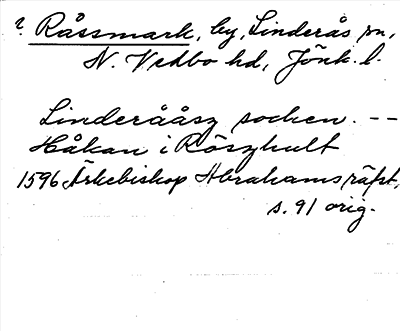 ? Råssmark, by, Linderås sn,
N. Vedbo hd, Jönk. l.
Linderååsz socken. --
Håkan i Röszhult
1596 Ärkebiskop Abrahams räfst,
s. 91 orig.